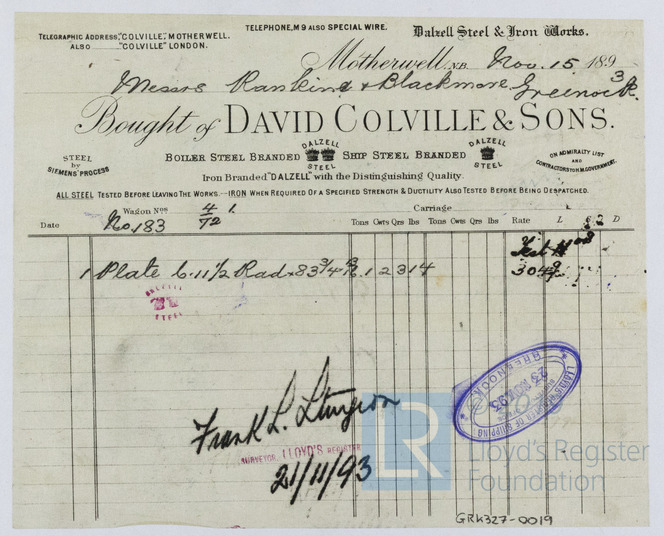 TELEPHONE, Nº 9 ALSO SPECIAL WIRE.
TELEGRAPHIC ADDRESS, "COLVILLE", MOTHERWELL.
ALSO "COLVILLE" LONDON.
Dalzell Steel & Iron Works.
Motherwell, N.B. Nov. 15 1893
Messrs Rankine & Blackmore, Greenock.
Bought of DAVID COLVILLE & SONS.
STEEL by SIEMENS' PROCESS
BOILER STEEL BRANDED DALZELL STEEL SHIP STEEL BRANDED DALZELL STEEL
ON ADMIRALTY LIST AND CONTRACTORS TO H.M. GOVERNMENT.
Iron Branded "DALZELL" with the Distinguishing Quality.
ALL STEEL TESTED BEFORE LEAVING THE WORKS.—IRON WHEN REQUIRED OF A SPECIFIED STRENGTH & DUCTILITY ALSO TESTED BEFORE BEING DESPATCHED.
Wagon Nos 4/72 1. Carriage
Date No. 183 Tons Cwts Qrs lbs Tons Cwts Qrs lbs Rate L S D
Test
1 Plate 6.11 1/2 Rad x 83 3/4 1 2 3 14 3049
DALZELL
STEEL
Frank L. Sturgeon
SURVEYOR, LLOYD'S REGISTER
21/11/93
LLOYD'S REGISTER OF SHIPPING
GREENOCK
LR
Lloyd's Register
Foundation
GRK327-0019